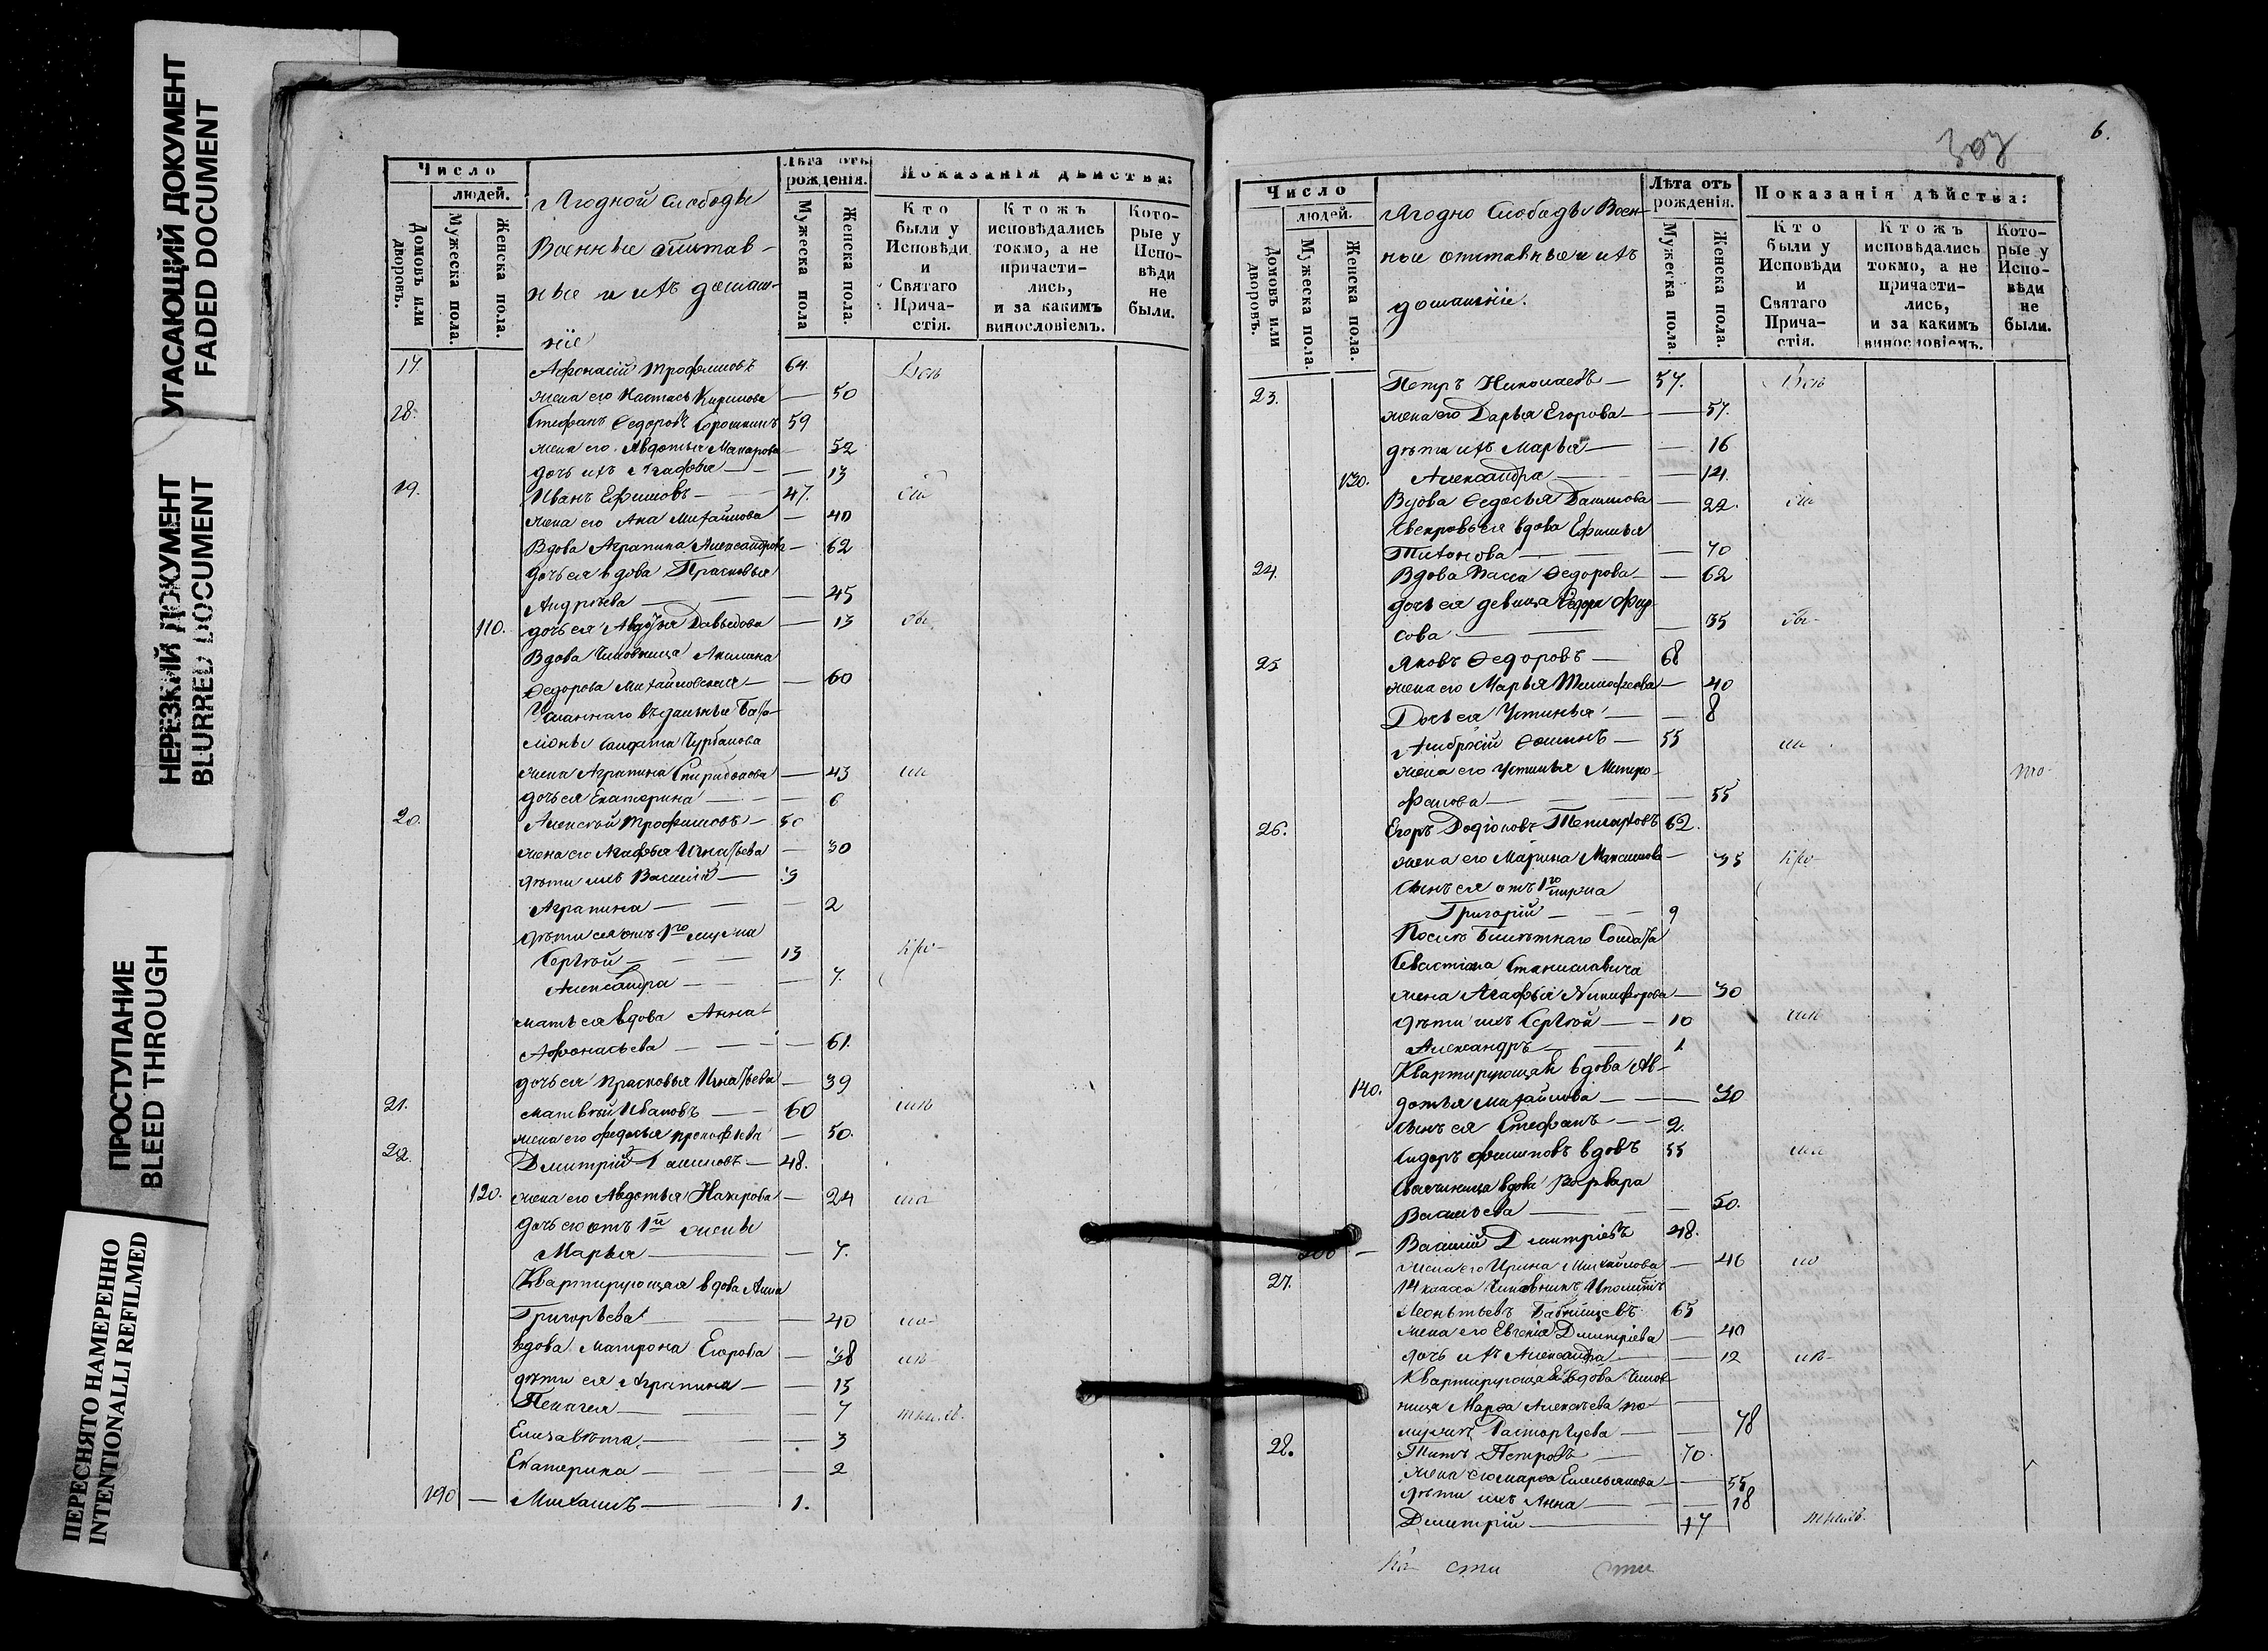 УГАСАЮЩИЙ ДОКУМЕНТ
FADED DOCUMENT
НЕРЕЗКИЙ ДОКУМЕНТ
BLURRED DOCUMENT
ПРОСТУПАНИЕ
BLEED THROUGH
ПЕРЕСНЯТО НАМЕРЕННО
INTENTIONALLI REFILMED
Число
людей.
Домовъ или дворовъ.
Мужеска пола.
Женска пола.
Ягодной Слободы
Военные отстав-
ные и ихъ домаш-
ніе
Лѣта отъ рожденія.
Мужеска пола
Женска пола.
Показанія дѣйства:
Кто были у Исповѣди и Святаго Прича-стія.
Ктожъ исповѣдались токмо, а не причасти-лись, и за какимъ винословіемъ.
Кото-рые у Испо-вѣди не были.
17. Афонасій Трофимовъ 64.
жена его Настасья Кирилова — 50
28. Стефанъ Ѳедоровъ Сорокинъ 59
жена его Авдотья Макарова — 52
дочь ихъ Агафья — 13
19. Иванъ Ефимовъ — 47.
жена его Ана Михайлова — 40
Вдова Аграпина Александрова — 62
дочь ея вдова Прасковья
Андрѣева — 45
110. дочь ея Авдотья Давыдова — 13
Вдова Чиновница Акилина
Ѳедорова Михайловская — 60
жена Аграпина Спиридонова — 43
дочь ея Екатерина — 6
20. Алексѣй Трофимовъ — 50
жена его Агафья Игнатьева — 30
дѣти ихъ Василій — 3
Аграпина — 2
дѣти ея отъ 1го мужа
Сергѣй — 13
Александра — 7.
мать ея вдова Анна
Афонасьева — 61.
дочь ея Прасковья Игнатьева — 39
21. Матвѣй Ивановъ — 60
жена его Федосья Прокофьева — 50.
22. Дмитрій — 48.
120. жена его Авдотья Назарова — 24
дочь его отъ 1й жены
Марья — 7.
Квартирующая вдова Анна
Григорьева — 40
вдова Матрона Егорова — 38
дѣти ея Аграпина — 15
Пелагея — 7
Елизавѣта — 3
Екатерина — 2
190 — Михаилъ — 1.
6.
307
Число
людей.
Домовъ или дворовъ.
Мужеска пола
Женска пола.
Ягодно Слободы Воен-
ные отставные и ихъ
домашніе.
Лѣта отъ рожденія.
Мужеска пола.
Женска пола.
Показанія дѣйства:
Кто были у Исповѣди и Святаго Прича-стія.
Ктожъ исповѣдались токмо, а не причасти-лись, и за какимъ винословіемъ.
Кото-рые у Испо-вѣди не были.
23. Петръ Николаевъ — 57.
жена его Дарья Егорова — 57.
дѣти ихъ Марья — 16
130. Александра — 14.
Вдова Ѳедосья Данилова — 22.
Свекровь ея вдова Ефимья
Тихонова — 70
24. Вдова Васса Ѳедорова — 62
дочь ея девица
сова — 35
25. Яковъ Ѳедоровъ — 68
жена его Марья Тимофеева — 40
Дочь ея Устинья — 8
Амбросій Ѳоминъ — 55
жена его Устинья Митро-
фанова — 55
26. Егоръ Родіоновъ 62.
жена его Марина Максимова — 35
Сынъ ея отъ 1го мужа
Григорій — 9
Солдата
Севастіана Станиславича
жена Агафья Никифорова — 30
дѣти ихъ Сергѣй — 10
Александръ — 1
Квартирующая вдова Ав-
140. дотья Михайлова — 30
Сынъ ея Стефанъ — 2.
Сидоръ Филиповъ вдовъ 55
вдова Варвара
Васильева — 50.
200 — Василій Дмитріевъ 48.
жена его Ирина Михайлова — 46
27. 14 класса Чиновникъ Иполитъ
Леонтьевъ 65
жена его Евгенія Дмитріева — 40
дочь ихъ Александра — 12
Квартирующая вдова Чинов
ница Марѳа Алексѣева по
мужу Расторгуева — 78
28. Титъ Петровъ — 70.
жена его Марѳа Емельянова — 55
дѣти ихъ Анна — 18
Дмитрій — 17